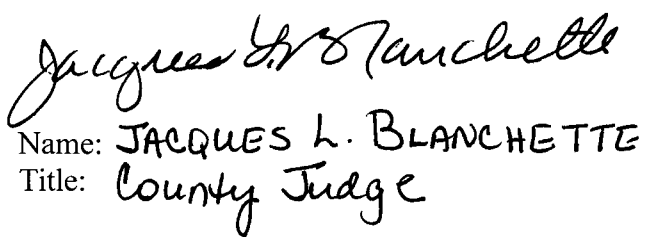 Jacques L. Blanchette
Name: JACQUES L. BLANCHETTE
Title: County Judge